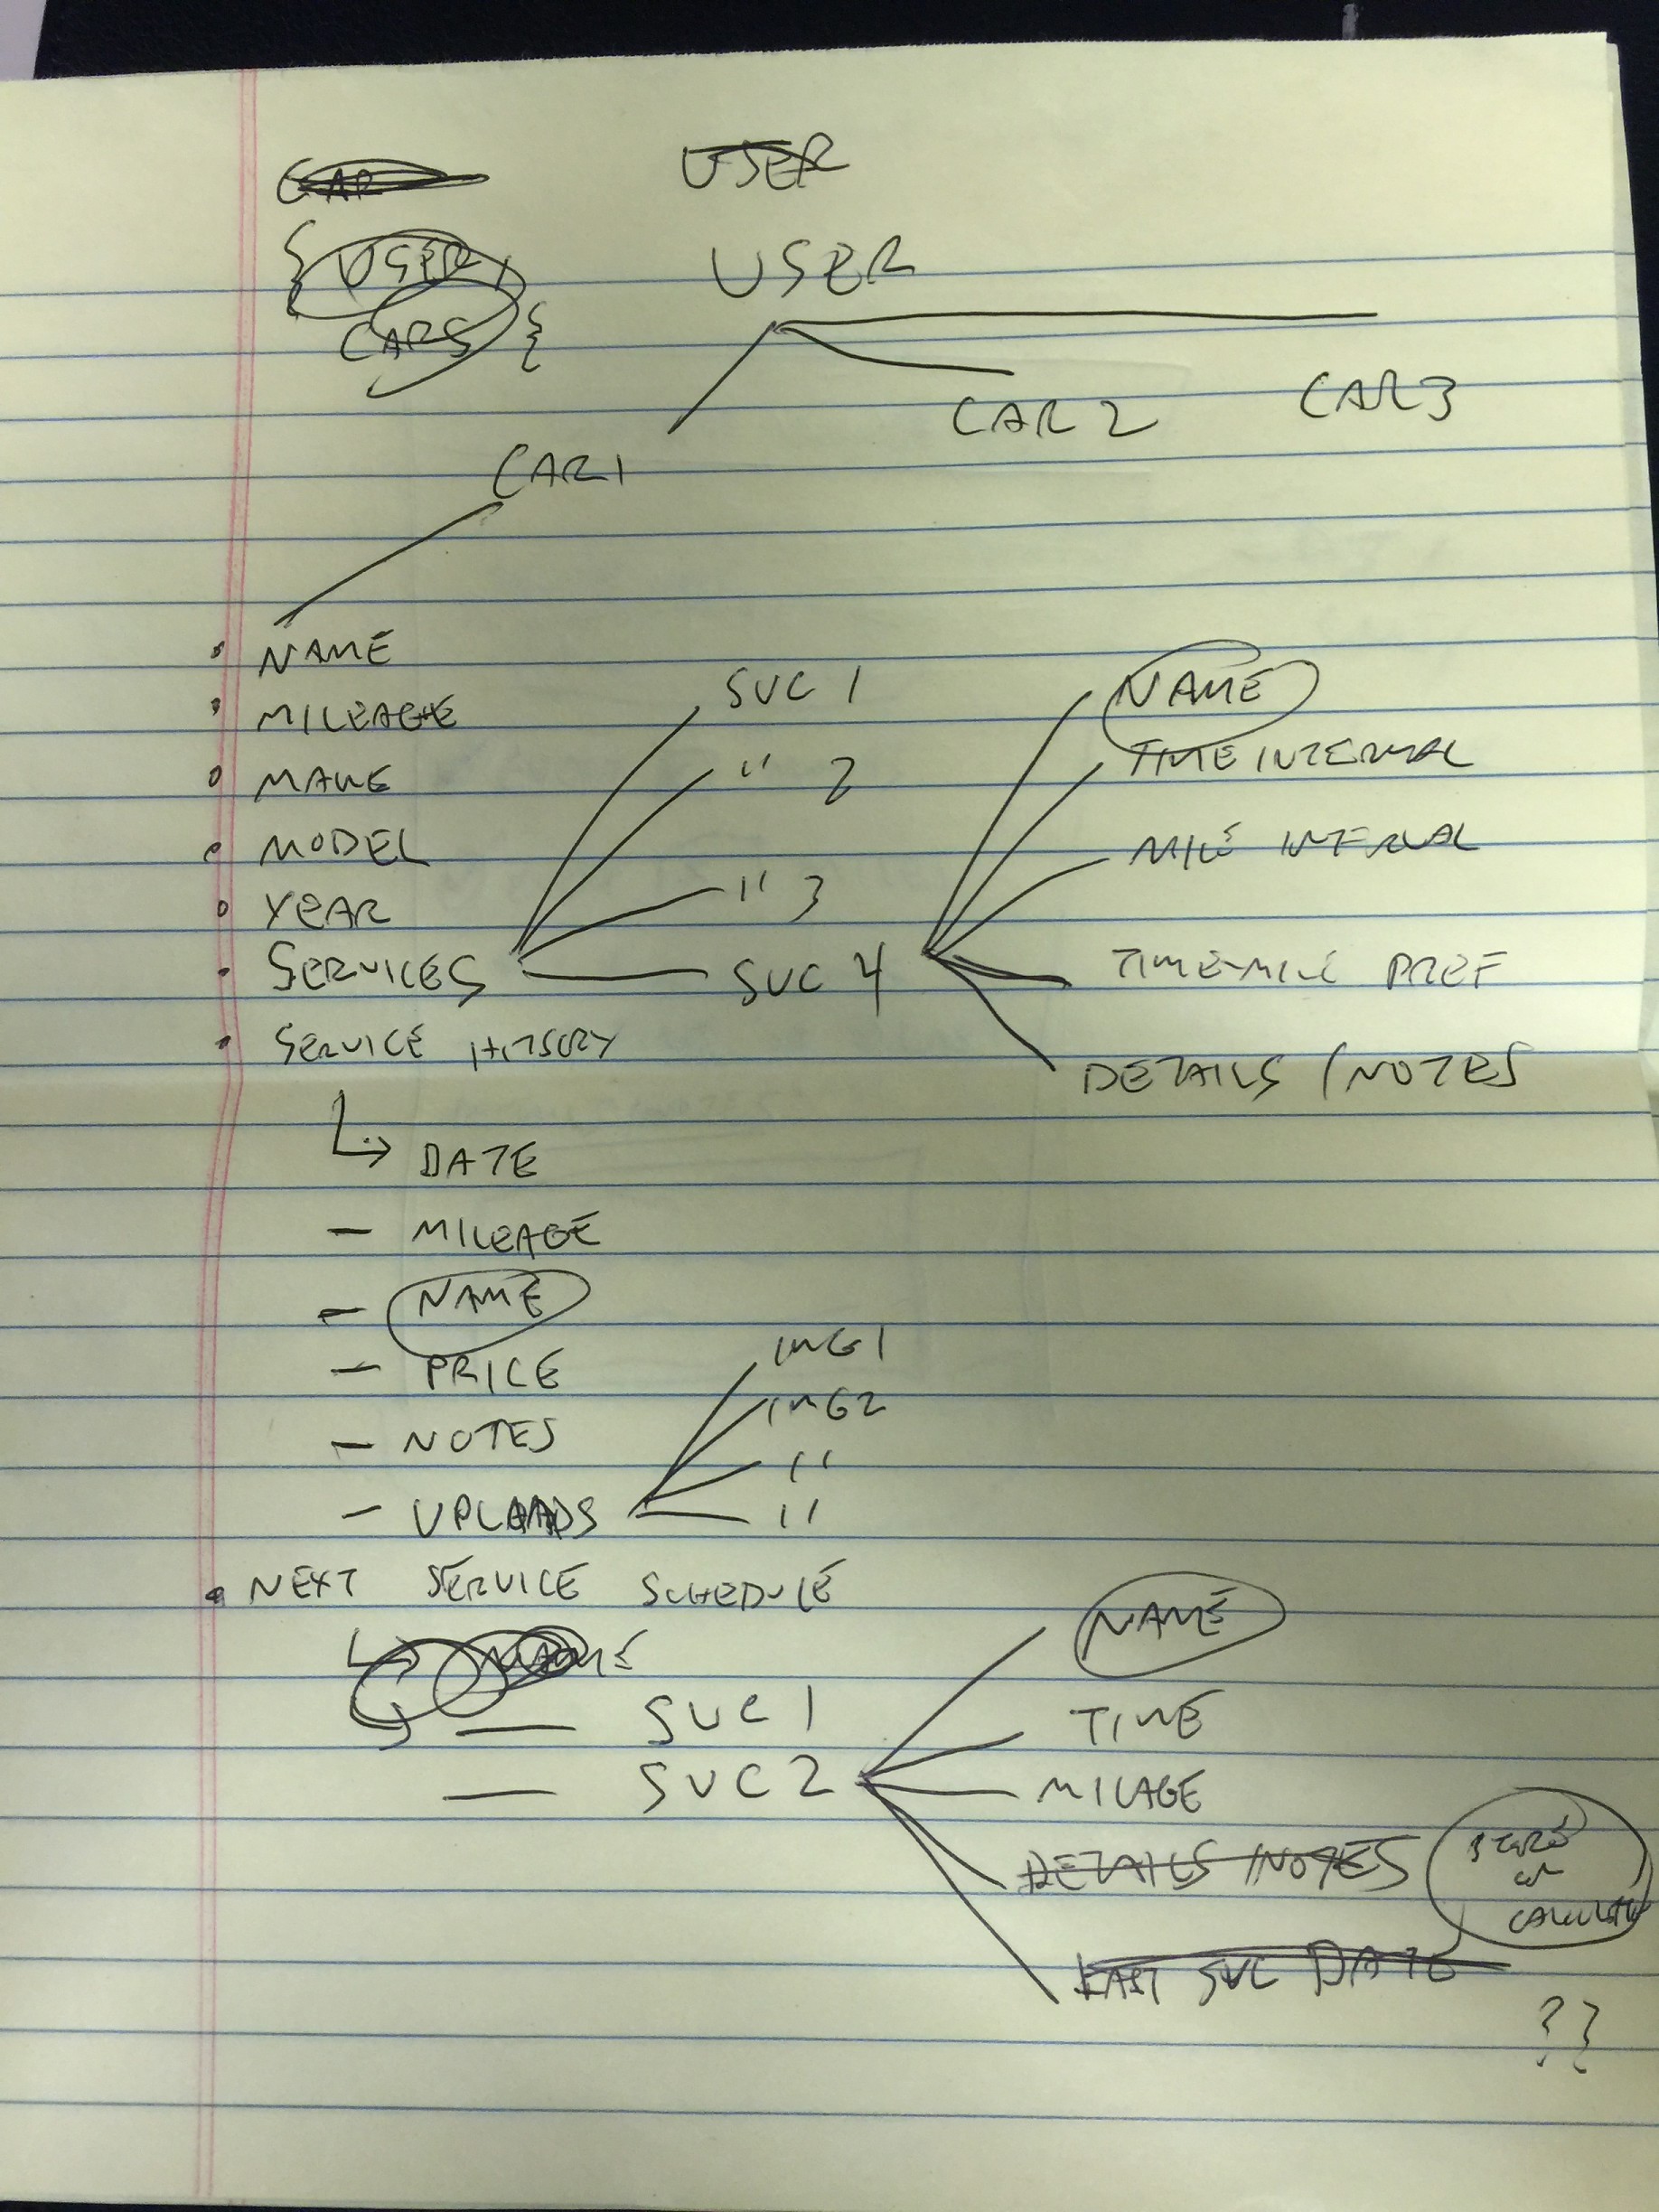 CAR
USER
{ USER,
USER
CARS }
CAR 1
CAR 2
CAR 3
NAME
MILEAGE
MAKE
MODEL
YEAR
SERVICES
SVC 1
" 2
" 3
SVC 4
NAME
TIME INTERVAL
MILE INTERVAL
TIME-MILE PREF
DETAILS / NOTES
SERVICE HITSORY
DATE
- MILEAGE
- NAME
- PRICE
- NOTES
- UPLOADS
IMG1
IMG2
"
"
NEXT SERVICE SCHEDULE
NAME
— SVC 1
— SVC 2
NAME
TIME
MILAGE
DETAILS / NOTES
LAST SVC DATE
STORE
or
CALCULATE
??